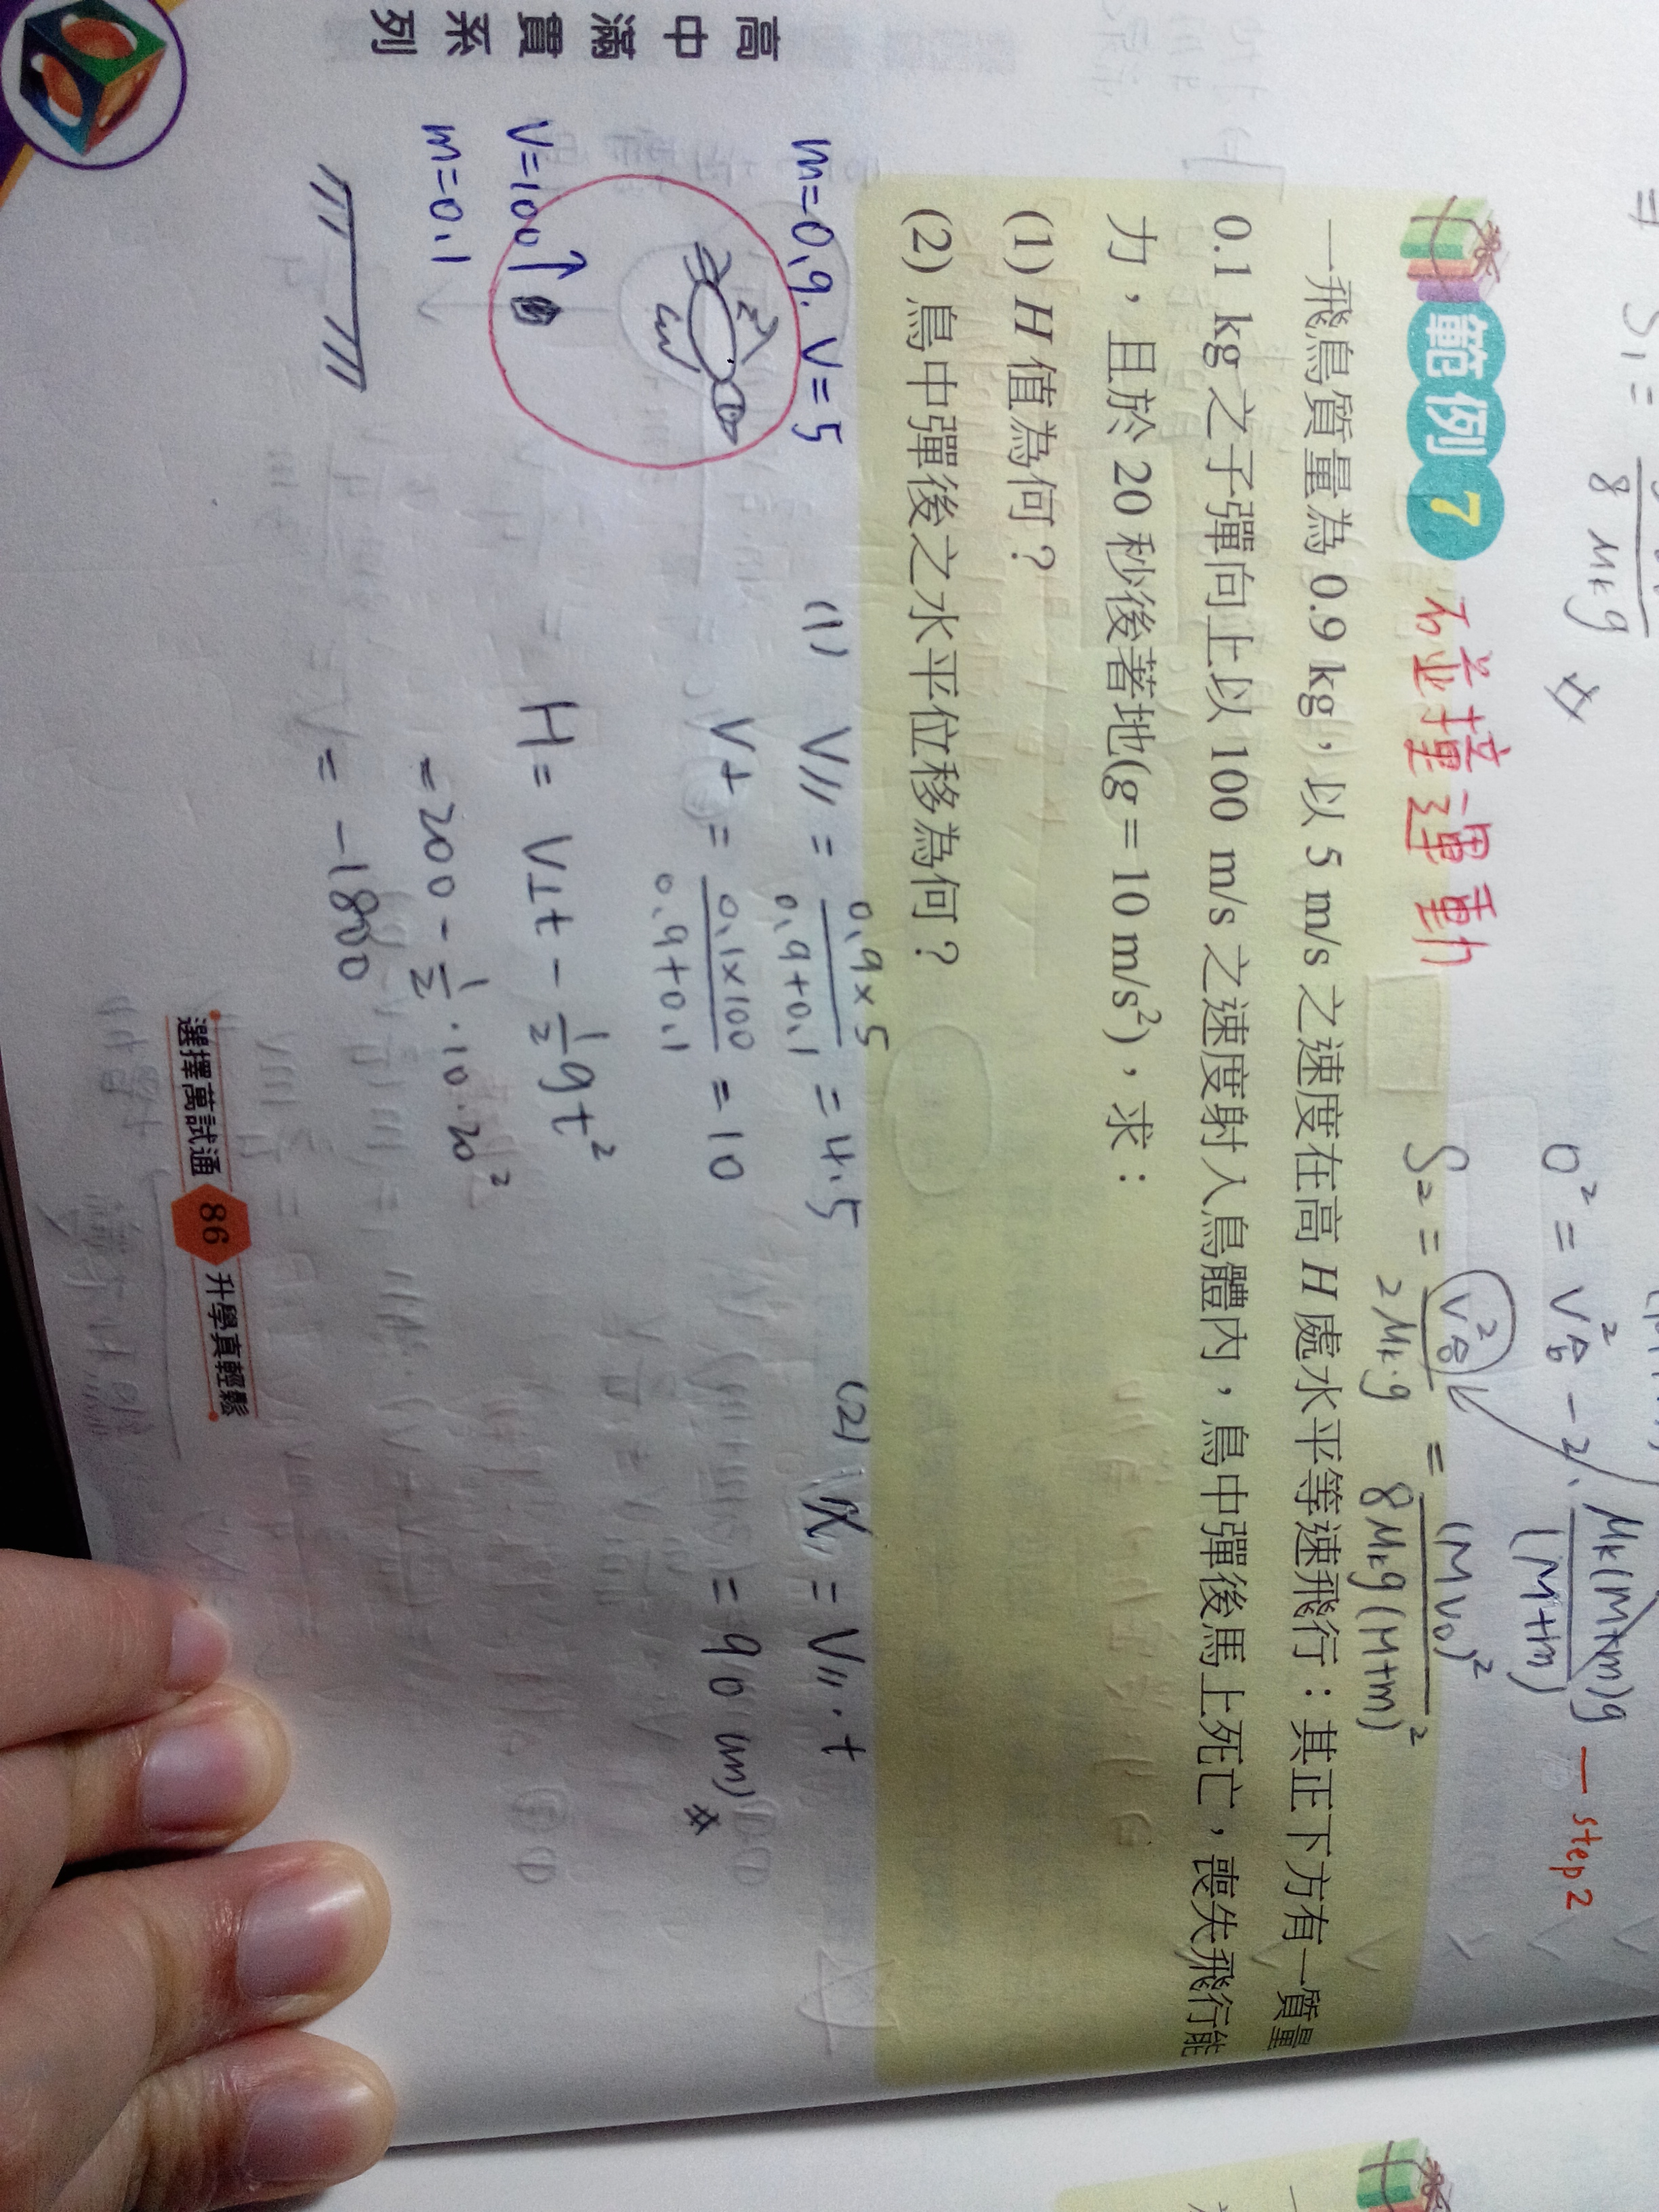 8 μkg
O² = V合² - 2 · μk(M+m)g / (M+m) — step 2
S₂ = V合² / 2μk·g = (Mv₀)² / 8μkg(M+m)²
範例 7 碰撞運動
一飛鳥質量為 0.9 kg,以 5 m/s 之速度在高 H 處水平等速飛行:其正下方有一質量
0.1 kg 之子彈向上以 100 m/s 之速度射入鳥體內,鳥中彈後馬上死亡,喪失飛行能
力,且於 20 秒後著地(g = 10 m/s²),求:
(1) H 值為何?
(2) 鳥中彈後之水平位移為何?
m=0.9. V=5
V=100↑
m=0.1
(1) V// = 0.9×5 / 0.9+0.1 = 4.5
V⊥ = 0.1×100 / 0.9+0.1 = 10
H = V⊥t - ½gt²
= 200 - ½·10·20²
= -1800
(2) X = V//·t
= 90 (m)
高中滿貫系列
選擇萬試通 86 升學真輕鬆